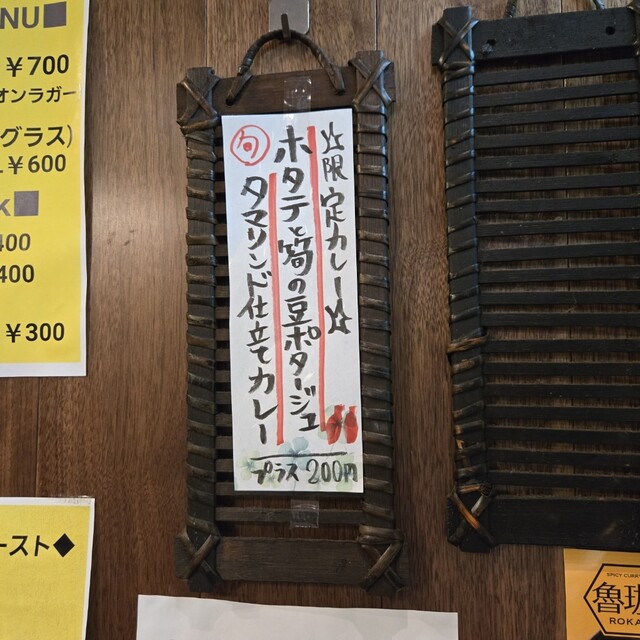 NU■
￥700
オンラガー
グラス)
.￥600
k■
400
400
￥300
ースト◆
☆限定カレー☆
旬
ホタテと筍の豆ポタージュ
タマリンド仕立てカレー
プラス 200円
SPICY CURRY
魯珈
ROKA